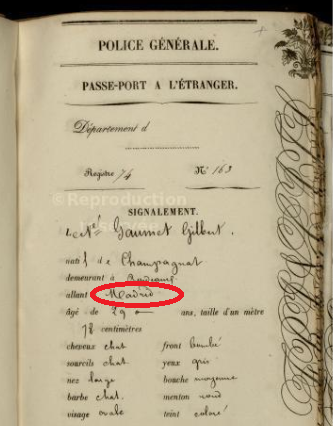 POLICE GÉNÉRALE.
PASSE-PORT A L'ÉTRANGER.
Département d
Registre 74 N° 163
Reproduction
SIGNALEMENT.
Gilbert.
natif de Champagnat
demeurant à Bordeaux
allant Madrid
âgé de 29 ans, taille d'un mètre
78 centimètres
cheveux chat. front bombé
sourcils chat. yeux gris
nez large bouche moyenne
barbe chat. menton rond
visage ovale teint coloré